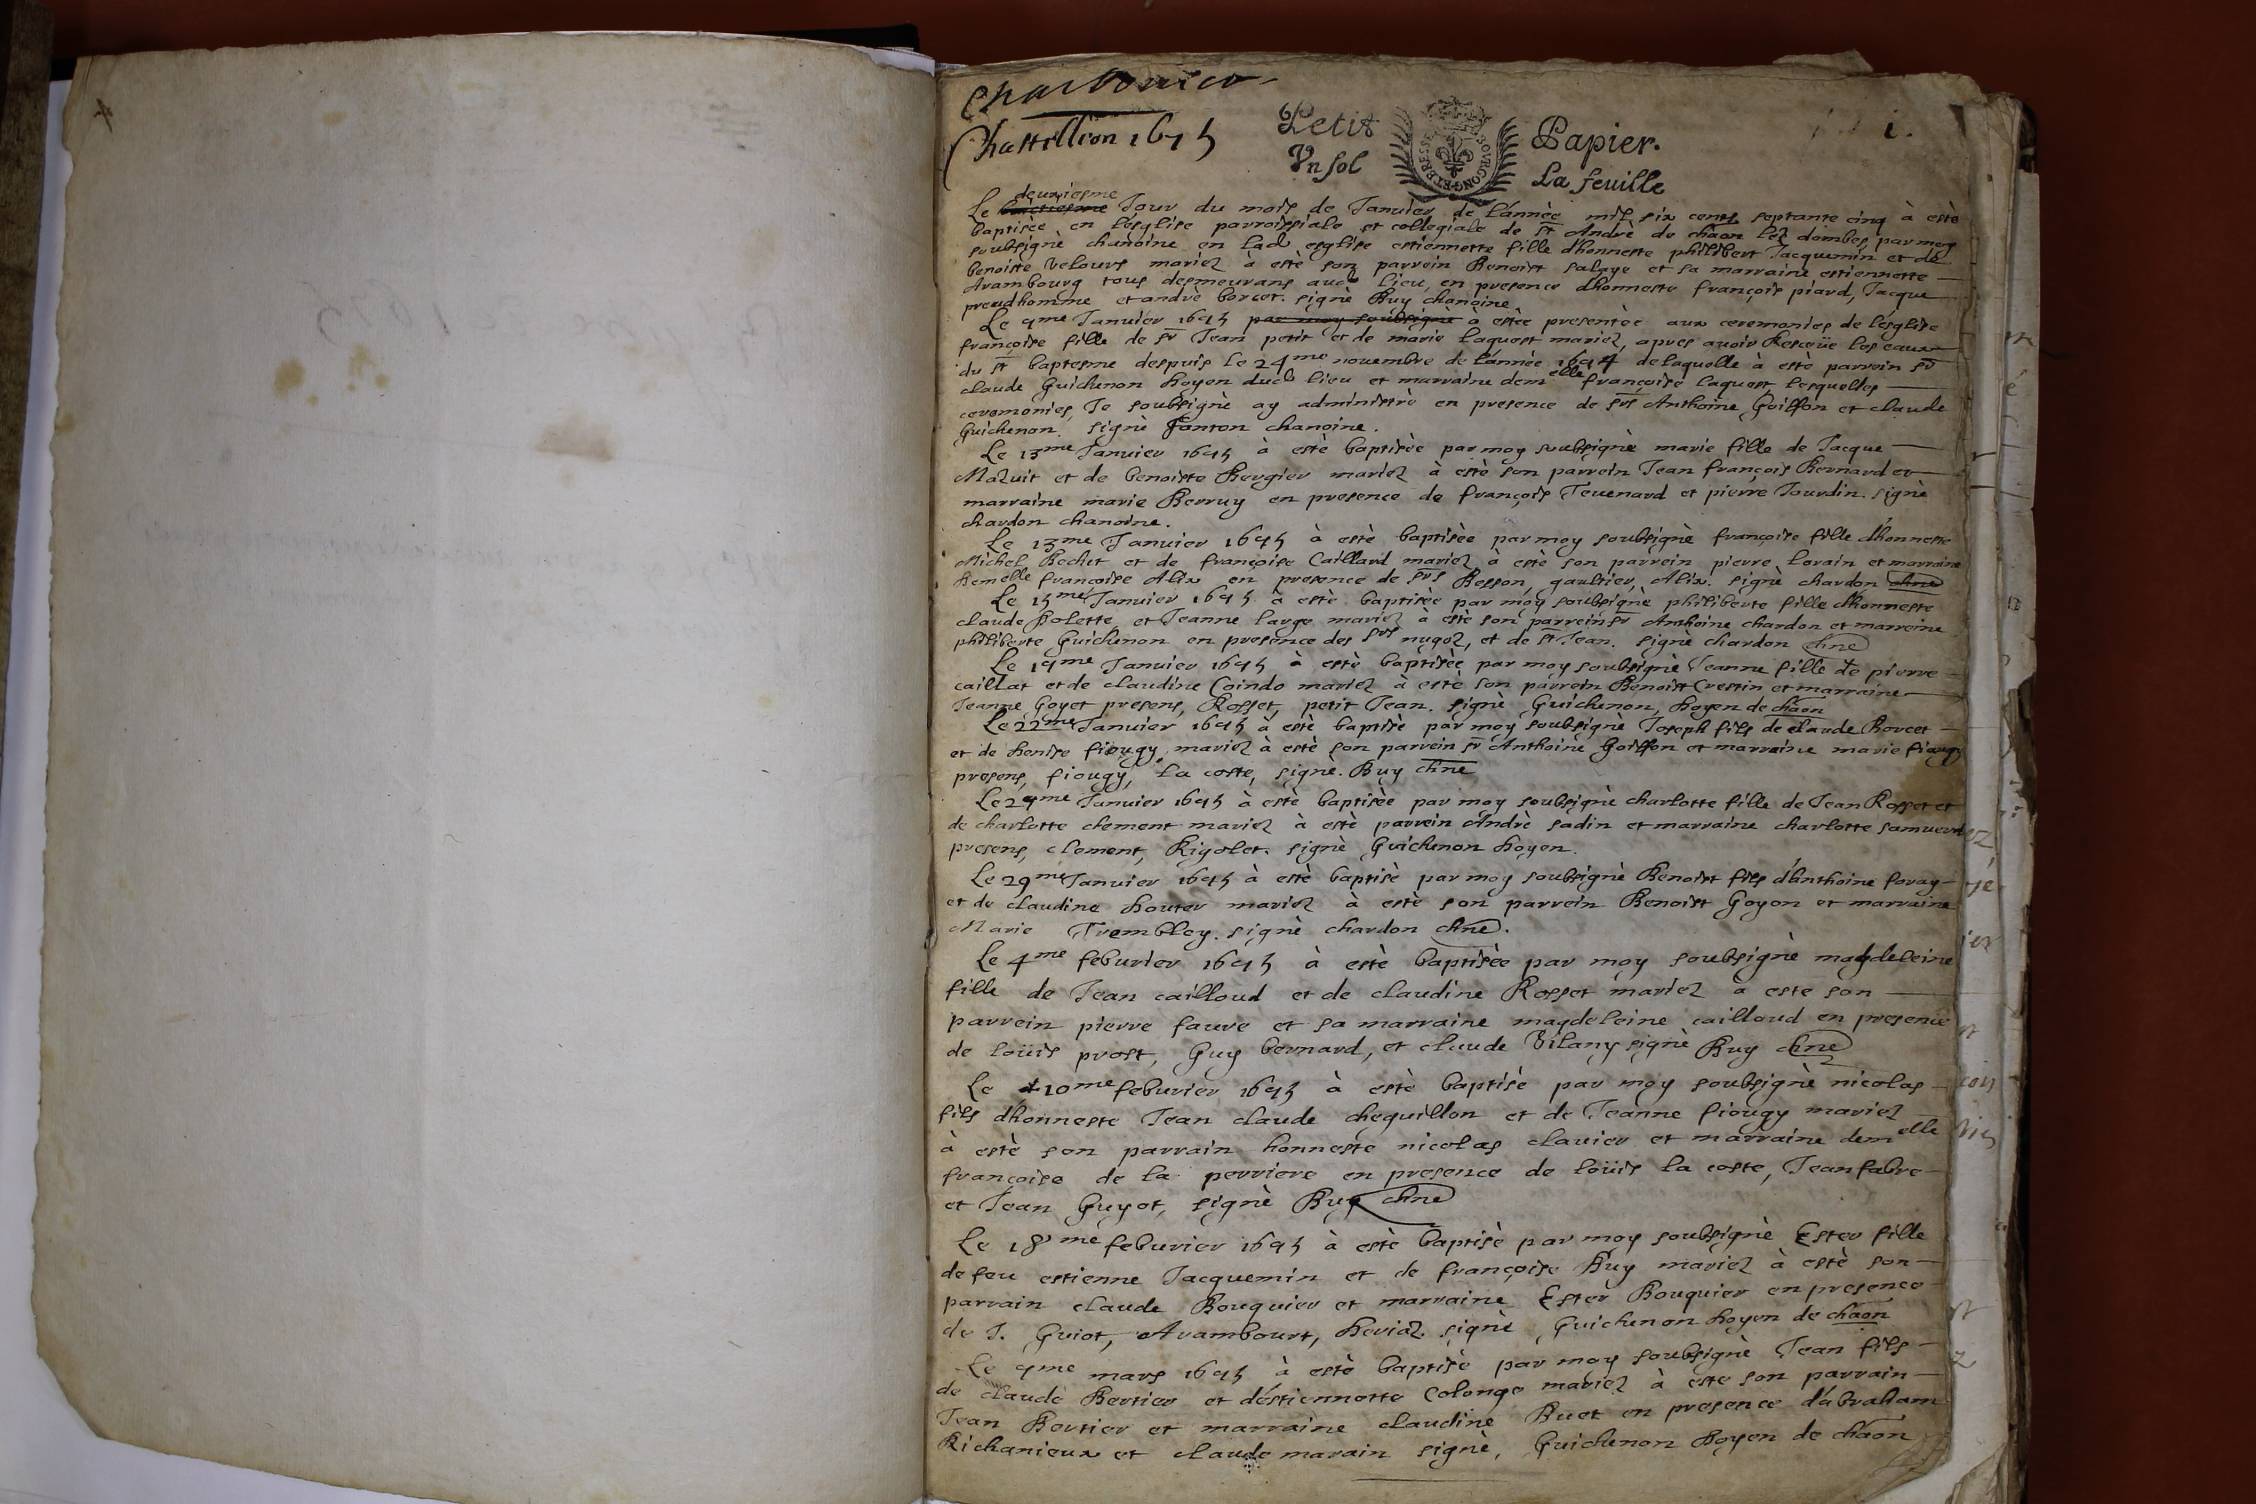 Chastillion 1675
Petit Papier.
Un sol La feuille
BOURGONG·ET·BRESSE
1.
deuxiesme
Le Jour du mois de Januier de l'année mil six cents septante cinq à estè
baptisée en l'ésglise parroissiale et collegiale de St Andrè de chãon lez dombes, par moy
soubsignè chanoine en lad esglise estiennette fille d'honneste philibert Jacquemin et de
benoiste Velours mariez à estè son parrein Benoist salaye et sa marraine estiennette
Arambourg tous desmeurans aud lieu, en presence d'honneste françois piard, Jacque
preudhomme et andrè borcet. signè Buy chanoine
Le 9me Januier 1675 par moy soubsignè à estèe presentèe aux ceremonies de l'esglise
françoise fille de sr Jean petit et de marie laquest mariez, apres auoir Resceüe les eaux
du st baptesme despuis le 24me nouembre de l'année 1674 de laquelle à estè parrein sr
claude Guichenon Doyen dud lieu et marraine demelle françoise laquest, lesquelles
ceremonies, Je soubsignè ay administrè en presence de srs Anthoine Goiffon et claude
Guichenon. signè Janton chanoine.
Le 13me Januier 1675 à estè baptisèe par moy soubsignè marie fille de Jacque
Mazuit et de benoiste Bergier mariez à estè son parrein Jean françois Bernard et
marraine marie Berruy en presence de françois Teuenard et pierre Jourdin. signè
chardon chanoine.
Le 13me Januier 1675 à estè baptisèe par moy soubsignè françoise fille d'honneste
Michel Bechet et de françoise Caillard mariez à estè son parrein pierre Lorain et marraine
Demelle françoise Alix en presence de srs Besson, gaultier, Alix. signè chardon chne
Le 15me Januier 1675 à estè baptisèe par moy soubsignè philiberte fille d'honneste
claude Polette et Jeanne large mariez à estè son parrein sr Anthoine chardon et marreine
philiberte Guichenon en presence des srs nugoz, et de st Jean. signè chardon chne
Le 19me Januier 1675 à estè baptisèe par moy soubsignè Jeanne fille de pierre
caillat et de claudine Coindo mariez à estè son parrein Benoist Crestin et marraine
Jeanne Goyet presens, Rosset, petit Jean. signè Guichenon, Doyen de chãon
Le 22me Januier 1675 à estè baptisè par moy soubsignè Joseph fils de claude Borcet
et de Denise fiougy mariez à estè son parrein sr Anthoine Goiffon et marraine marie fiougy
presens, fiougy, la coste, signè. Buy chne
Le 29me Januier 1675 à estè baptisèe par moy soubsignè charlotte fille de Jean Rosset et
de charlotte clement mariez à estè parrein Andrè sadin et marraine charlotte samuerd
presens, clement, Rigolet. signè Guichenon Doyen.
Le 29me Januier 1675 à estè baptisè par moy soubsignè Benoist fils d'Anthoine foray
et de claudine Douter mariez à estè son parrein Benoist Goyon et marraine
Marie Trembley. signè chardon chne.
Le 4me feburier 1675 à estè baptisèe par moy soubsignè magdeleine
fille de Jean cailloud et de claudine Rosset mariez a este son
parrein pierre faure et sa marraine magdeleine cailloud en presence
de loüis prost, Guy bernard, et claude Vilany signè Buy chne
Le 10me feburier 1675 à estè baptisè par moy soubsignè nicolas
fils d'honneste Jean claude chequillon et de Jeanne fiougy mariez
à estè son parrain honneste nicolas clauier et marraine demelle
françoise de la perriere en presence de loüis la coste, Jean fabre
et Jean Guyot, signè Buy chne
Le 18me feburier 1675 à estè baptisè par moy soubsignè Ester fille
de feu estienne Jacquemin et de françoise Buy mariez à estè son
parrain claude Bouquier et marraine Ester Bouquier en presence
de J. Guiot, Arambourt, Deriaz. signè Guichenon Doyen de chãon
Le 9me mars 1675 à estè baptisè par moy soubsignè Jean fils
de claude Bertier et d'éstiennette Colonge mariez à este son parrain
Jean Bertier et marraine claudine Buet en presence d'abraham
Richanieux et claude marain signè, Guichenon Doyen de chãon